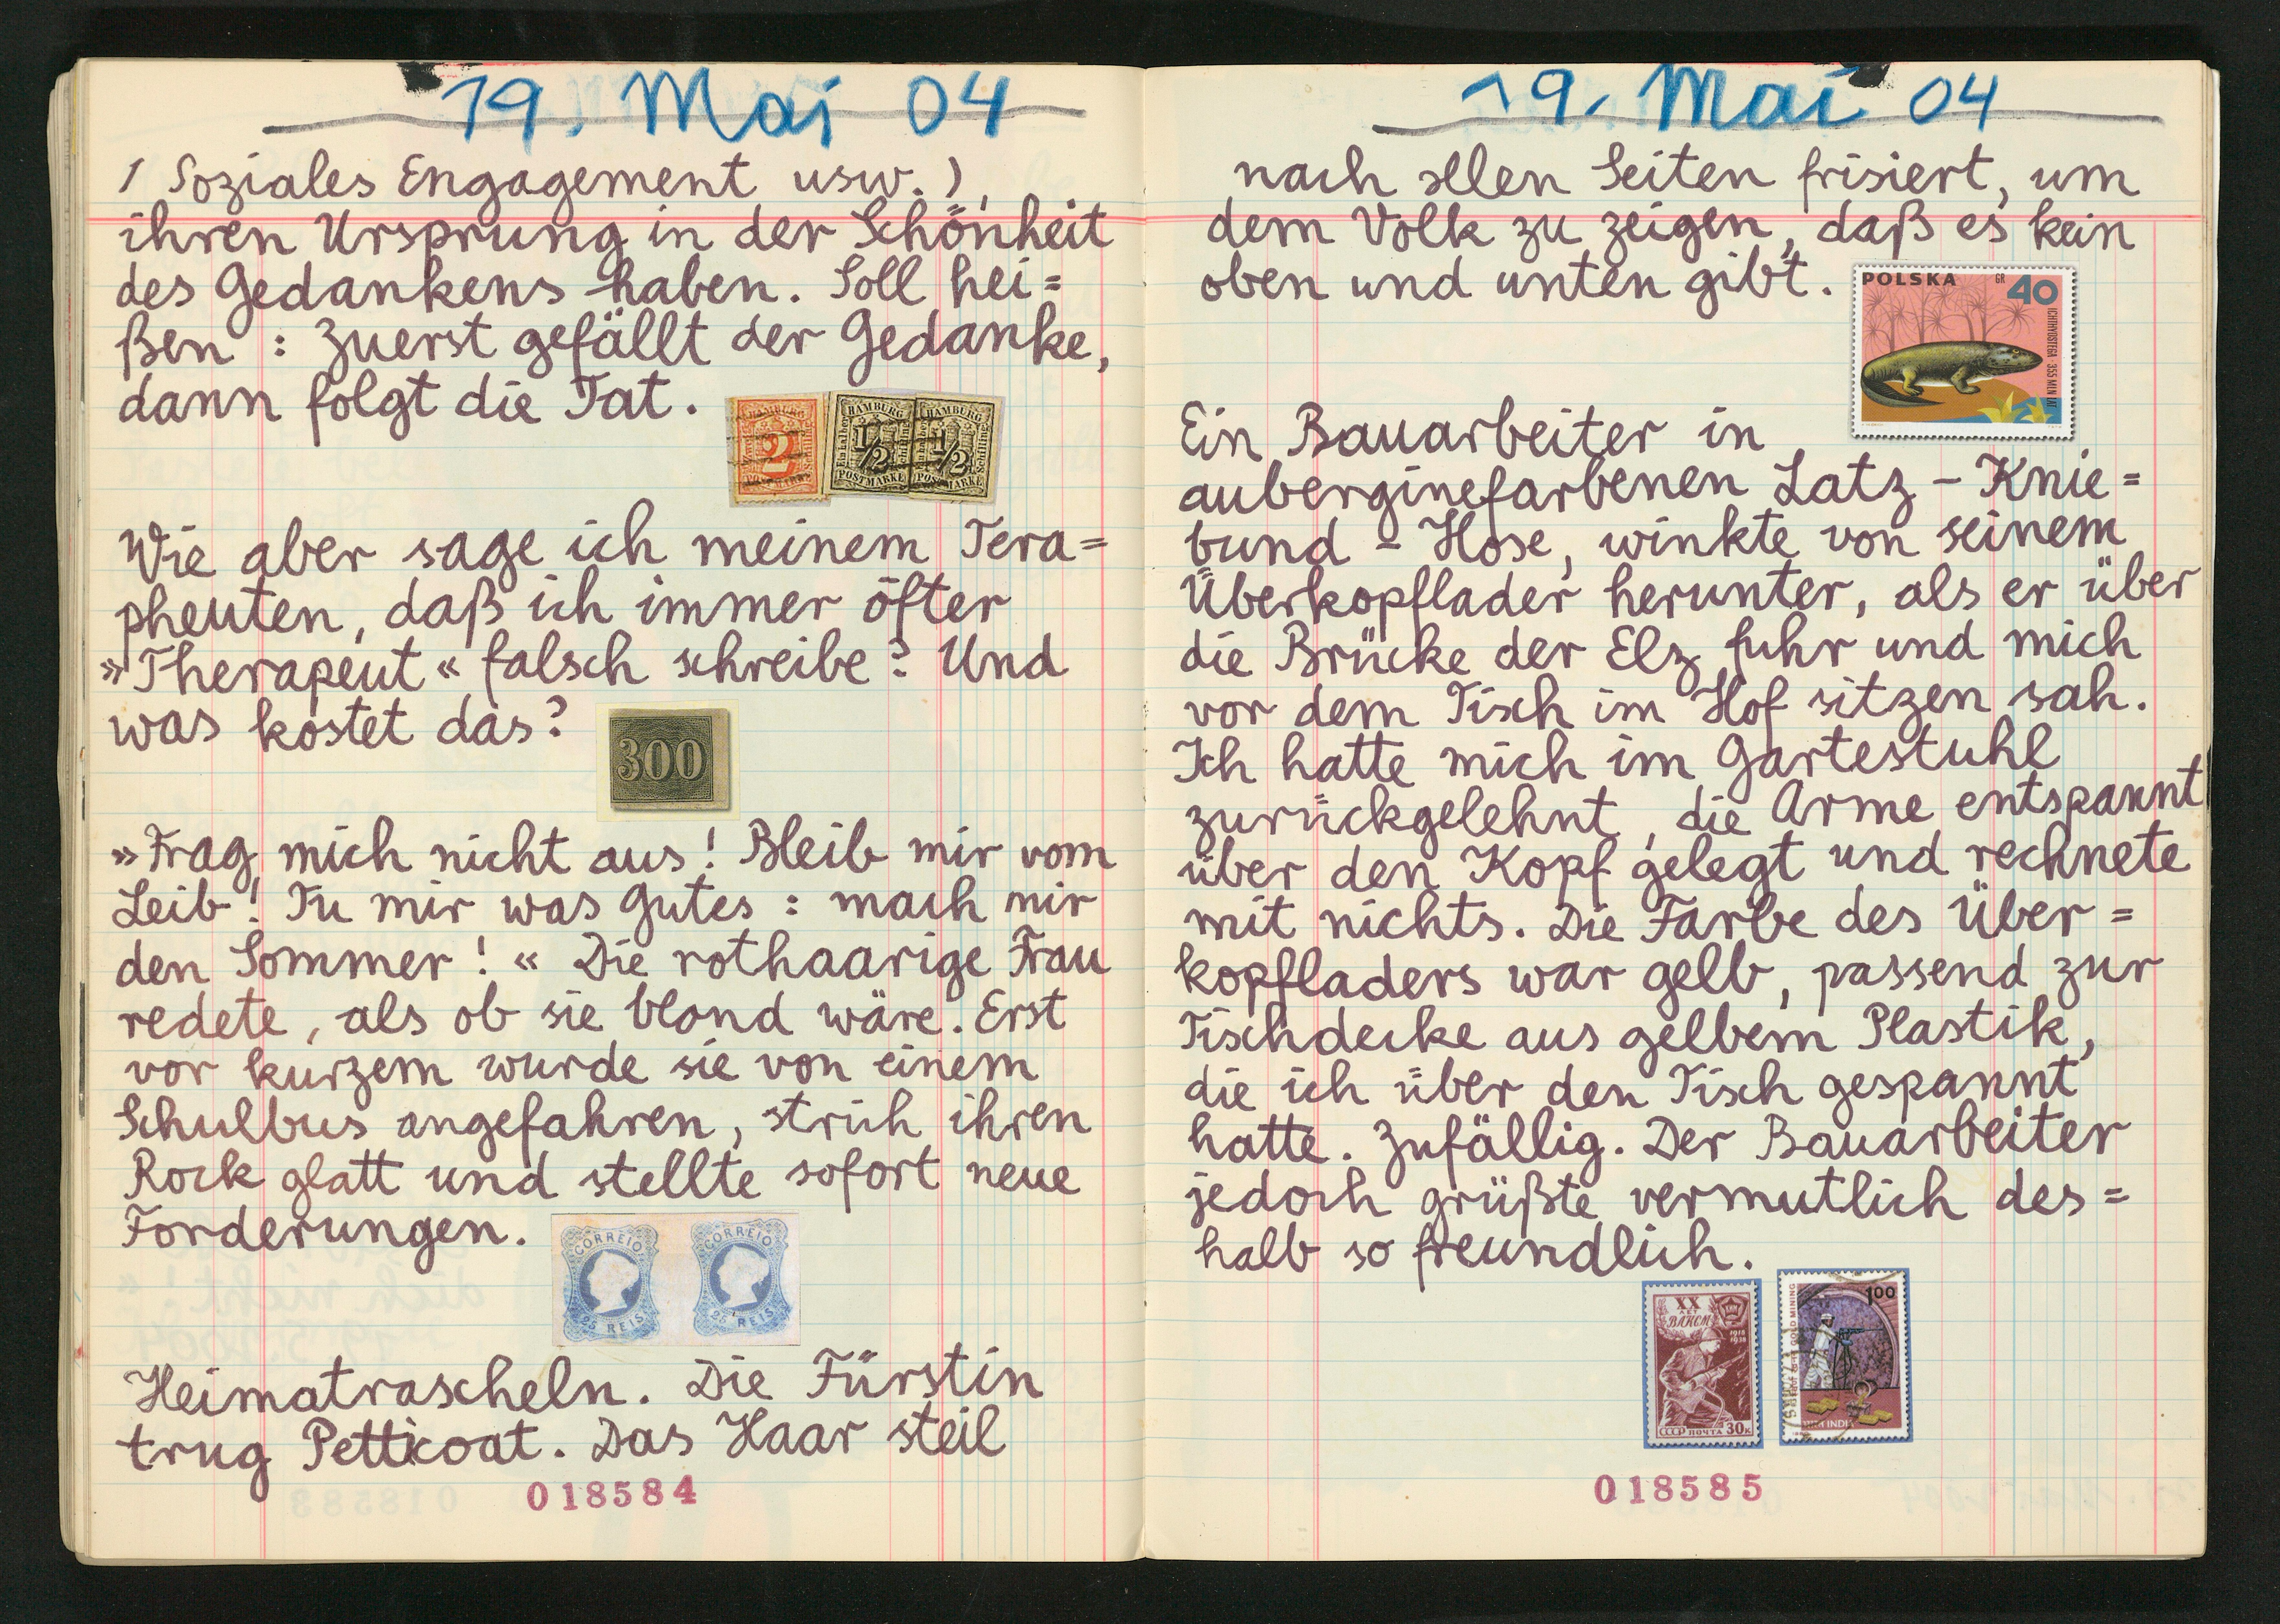 19. Mai 04
( Soziales Engagement usw. ),
ihren Ursprung in der Schönheit
des Gedankens haben. Soll hei=
ßen : Zuerst gefällt der Gedanke,
dann folgt die Tat.
HAMBURG
2
POSTMARKE
HAMBURG
1/2
POSTMARKE
HAMBURG
1/2
POSTMARKE
Wie aber sage ich meinem Tera=
pheuten, daß ich immer öfter
»Therapeut« falsch schreibe? Und
was kostet das?
300
»Frag mich nicht aus! Bleib mir vom
Leib! Tu mir was Gutes : mach mir
den Sommer! « Die rothaarige Frau
redete, als ob sie blond wäre. Erst
vor kurzem wurde sie von einem
Schulbus angefahren, strich ihren
Rock glatt und stellte sofort neue
Forderungen.
CORREIO
25 REIS
CORREIO
25 REIS
Heimatrascheln. Die Fürstin
trug Petticoat. Das Haar steil
018584
19. Mai 04
nach allen Seiten frisiert, um
dem Volk zu zeigen, daß es kein
oben und unten gibt.
POLSKA GR 40
ICHTHYOSTEGA 355 MLN LAT
Ein Bauarbeiter in
auberginefarbenen Latz - Knie=
bund - Hose, winkte von seinem
Überkopflader herunter, als er über
die Brücke der Elz fuhr und mich
vor dem Tisch im Hof sitzen sah.
Ich hatte mich im Gartestuhl
zurückgelehnt, die Arme entspannt
über den Kopf gelegt und rechnete
mit nichts. Die Farbe des Über=
kopfladers war gelb, passend zur
Tischdecke aus gelbem Plastik,
die ich über den Tisch gespannt
hatte. Zufällig. Der Bauarbeiter
jedoch grüßte vermutlich des=
halb so freundlich.
XX
ЛЕТ
ВЛКСМ
1918
1938
СССР ПОЧТА 30К
100
GOLD MINING
INDIA
018585